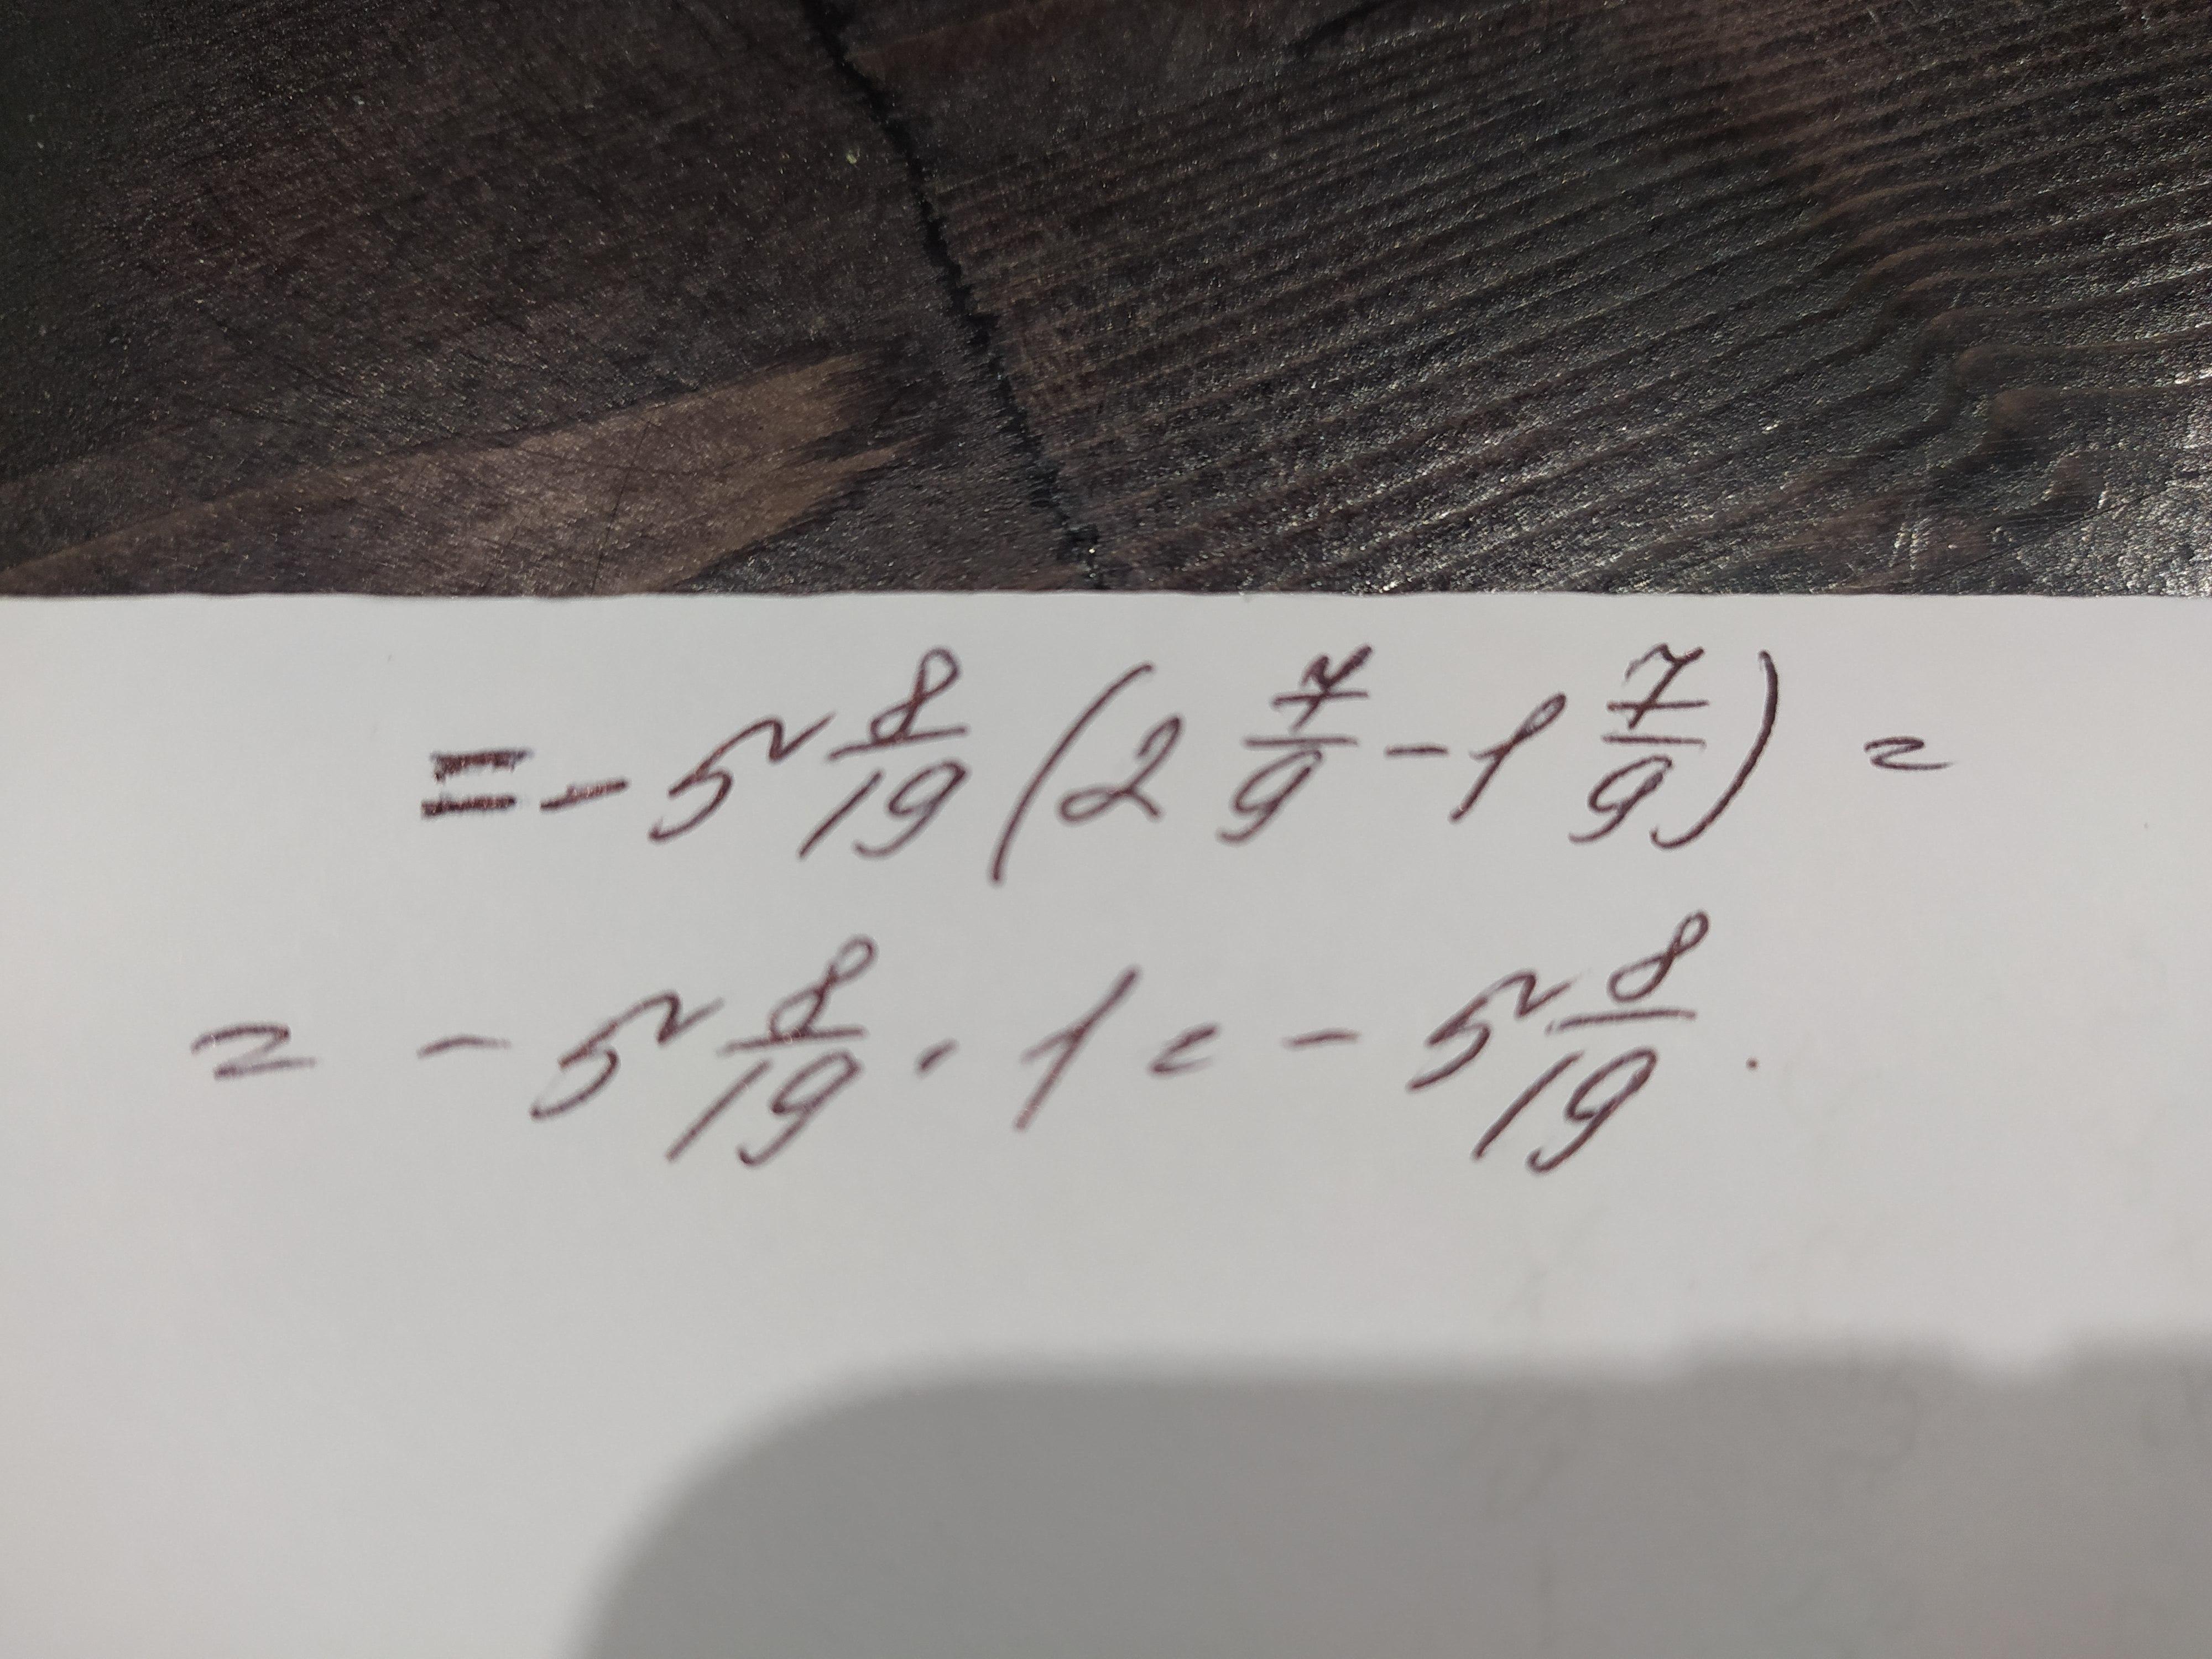 = - 5 8/19 (2 7/9 - 1 7/9) =
= - 5 8/19 · 1 = - 5 8/19 .